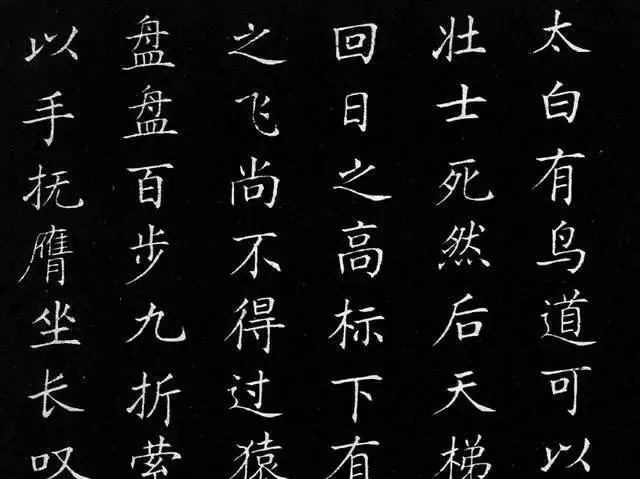 太白有鸟道可以
壮士死然后天梯
回日之高标下有
之飞尚不得过猿
盘盘百步九折萦
以手抚膺坐长叹